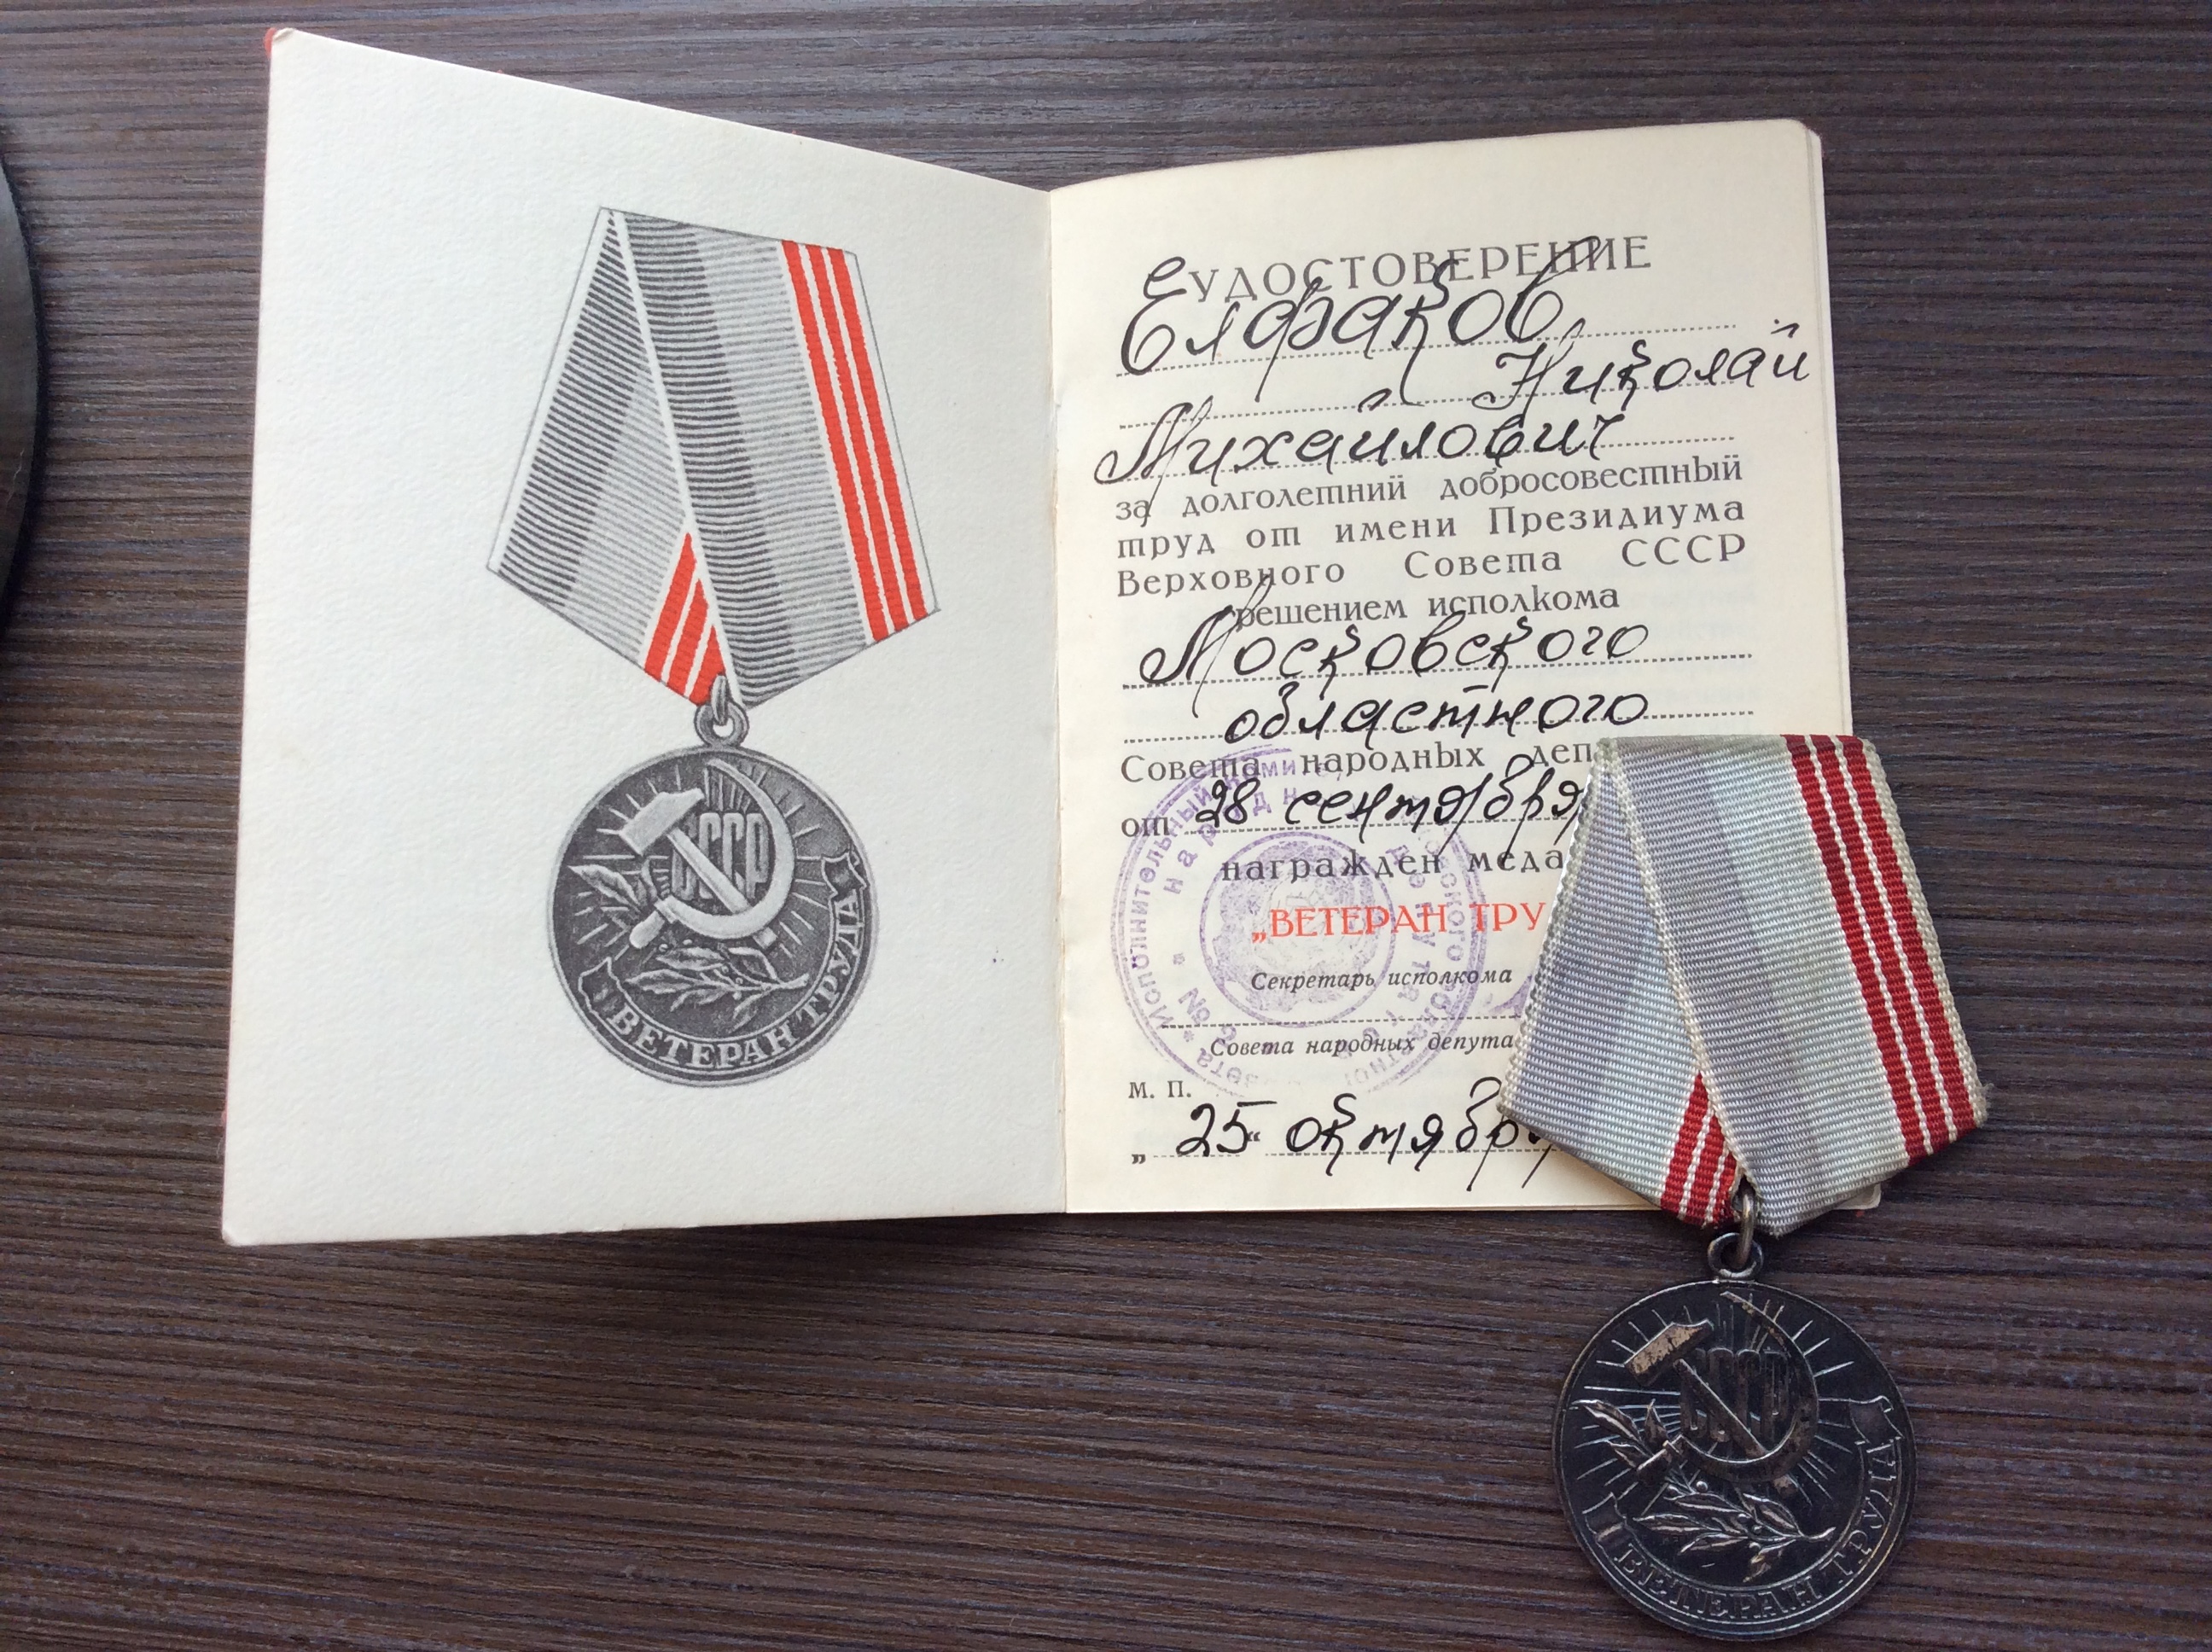 СССР
ВЕТЕРАН ТРУДА
УДОСТОВЕРЕНИЕ
Елфаков
Николай
Михайлович
за долголетний добросовестный
труд от имени Президиума
Верховного Совета СССР
решением исполкома
Московского
областного
Совета народных деп
от 28 сентября
награжден меда
„ВЕТЕРАН ТРУ
Секретарь исполкома
Совета народных депута
М. П.
„ 25 “ октября
Исполнительный комите
СССР
ВЕТЕРАН ТРУДА